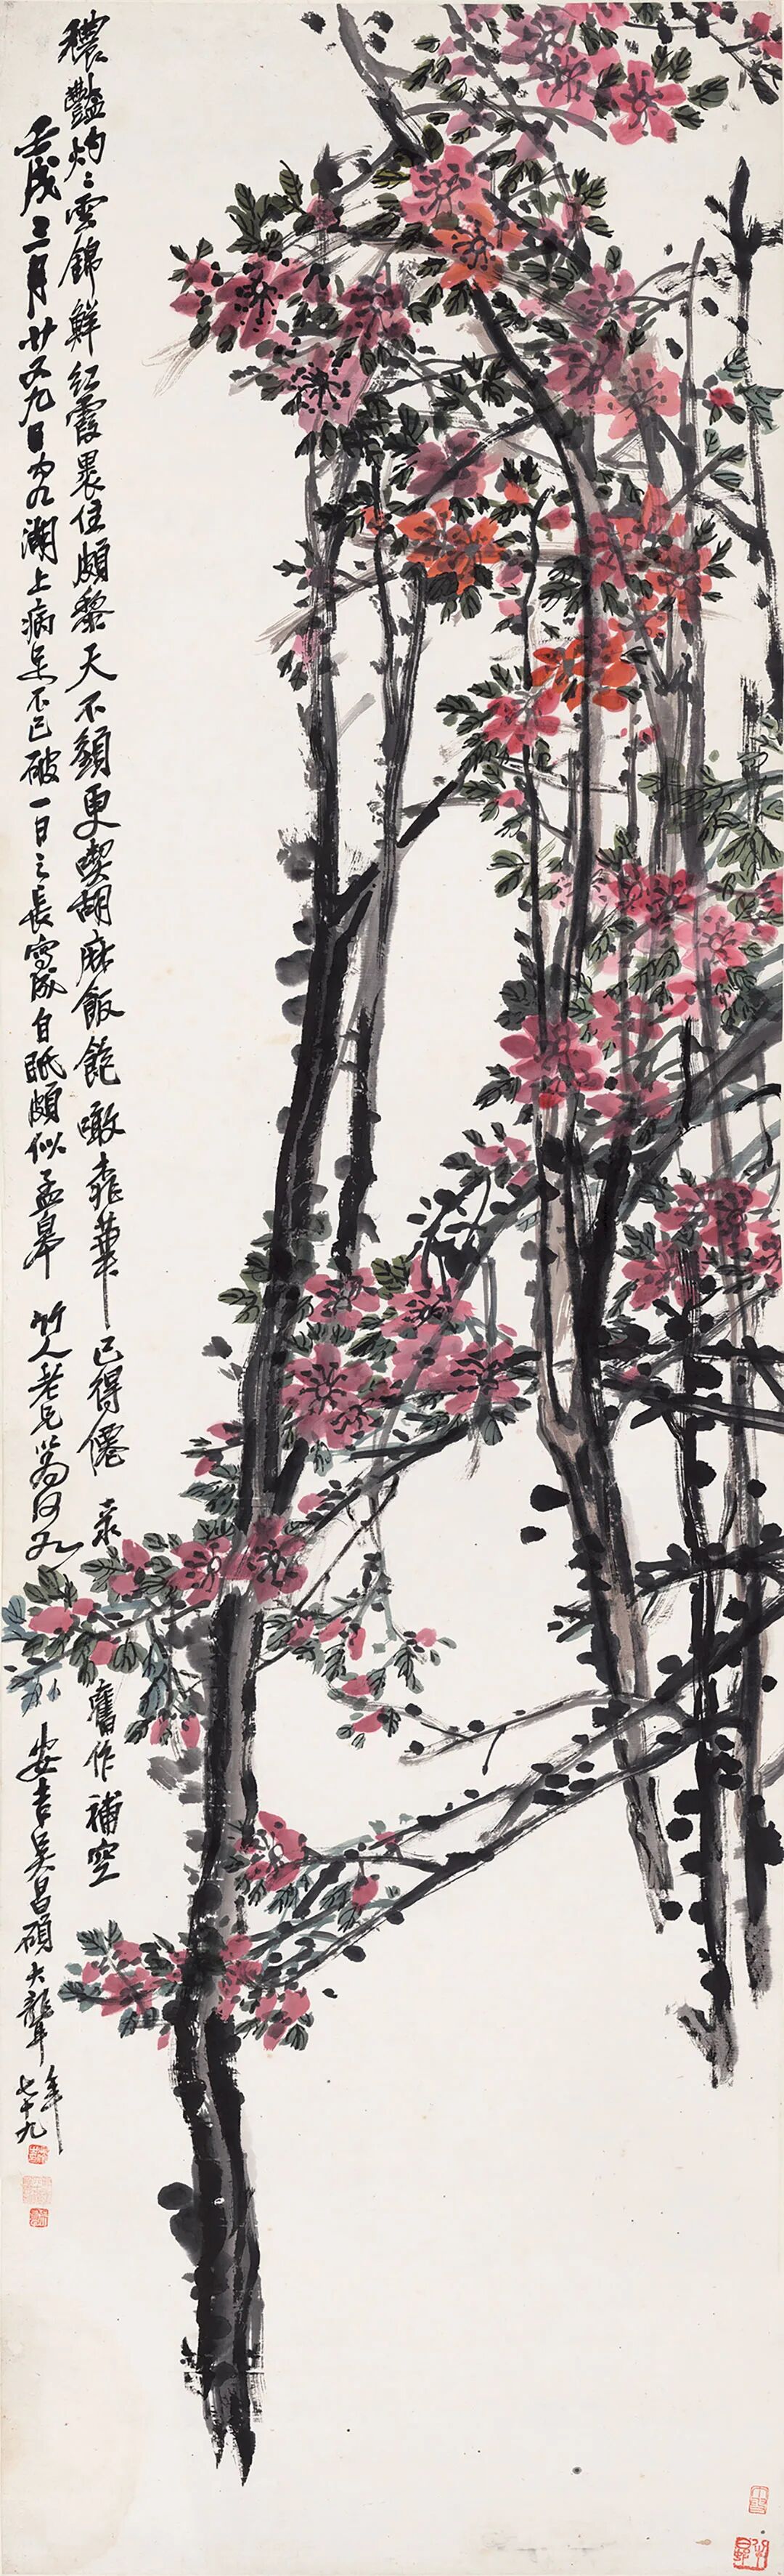 穠艷灼灼雲錦鮮紅霞裹住頗黎天不須更喫胡麻飯飽噉桃華已得僊
舊作補空
壬戌三月廿又九日客滬上病足不已破一日之長寫成自眂頗似孟皋竹人老兄以為何如
安吉吳昌碩大聾年
七十九